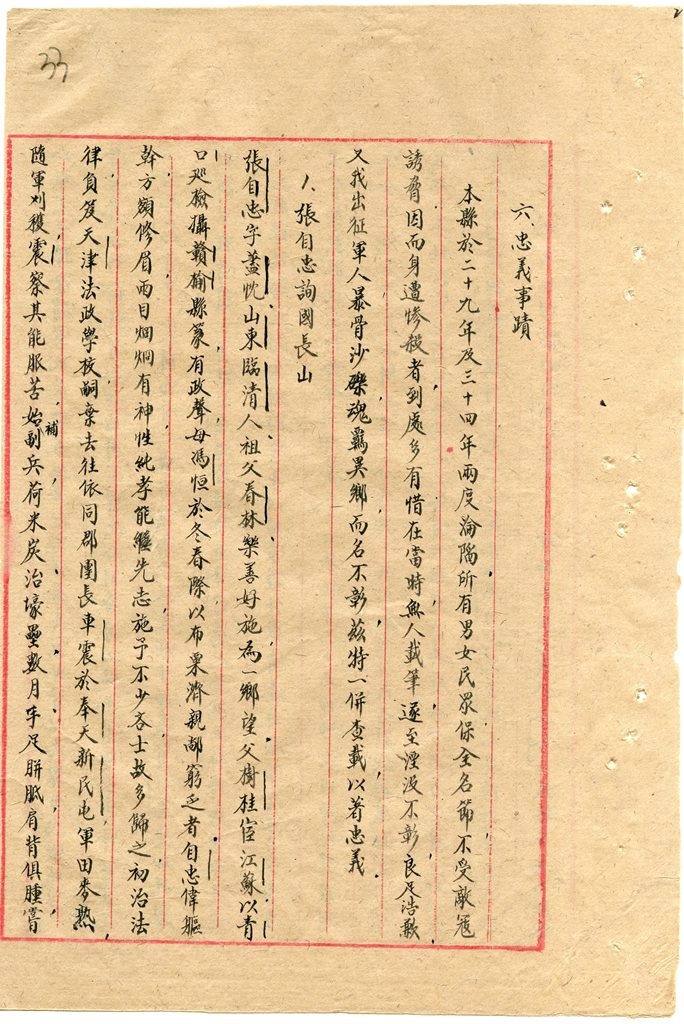 33
六、忠義事蹟
本縣於二十九年及三十四年兩度淪陷所有男女民眾保全名節不受敵寇
誘脅因而身遭慘殺者到處多有惜在當時無人載筆遂至湮沒不彰良足浩歎
又我出征軍人暴骨沙礫魂羈異鄉而名不彰茲特一併查載以著忠義
1、張自忠詢國長山
張自忠字藎忱山東臨清人祖父春林樂善好施為一鄉望父樹桂宦江蘇以青
口巡檢攝贛榆縣篆有政聲母馮恒於冬春際以布粟濟親鄰窮乏者自忠偉軀
幹方額修眉兩目烱烱有神性純孝能繼先志施予不少吝士故多歸之初治法
律負笈天津法政學校嗣棄去往依同郡團長車震於奉天新民屯軍田麥熟
隨軍刈穫震察其能服苦始補副兵荷米炭治壕壘數月手足胼胝肩背俱腫嘗